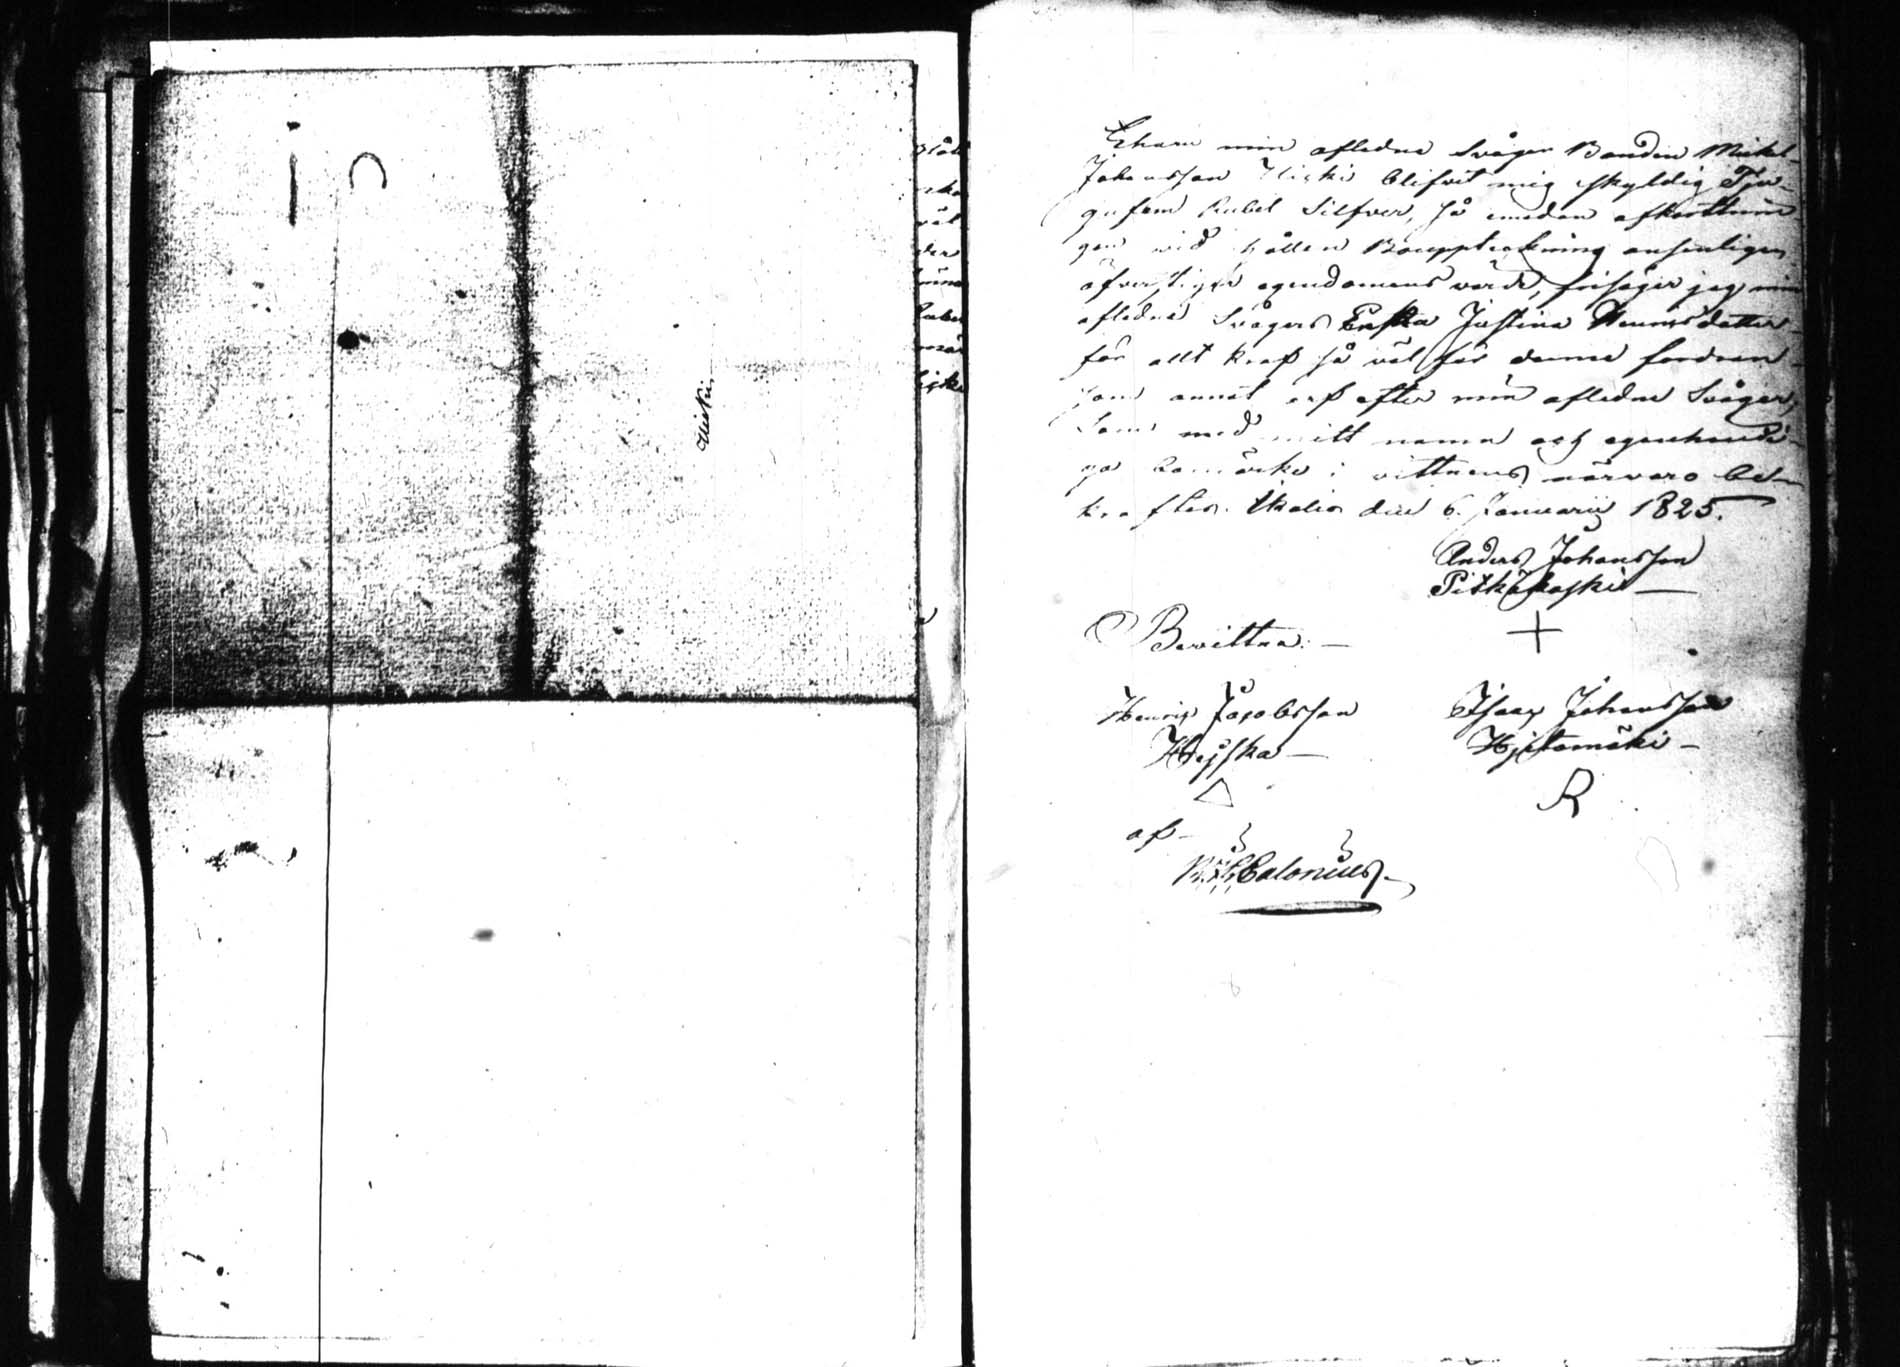 Ehuru min afledne Svåger Bonden Mickel
Johansson Ylicki blifvit mig skyldig Tju-
gufem Rubel Silfver, så emedan afkortnin-
gen vid hållen Bouppteckning ansenligen
öfverstiger egendomens värde, frisäger jag min
aflednes Svågers Enka Justina Hennesdotter
för allt kraf så väl för denna fordran
som annat arf efter min aflednes Svåger,
Som med mitt namn och egenhändi-
ga bomärke i vittnens närvaro be-
kräftes. Ikalis den 6. Januarii 1825.
Anders Johansson
Pitkäkoski
Bevittna:
Henric Jacobsson
Isaac Johansson
Hjetamäki
R
af
Calonius